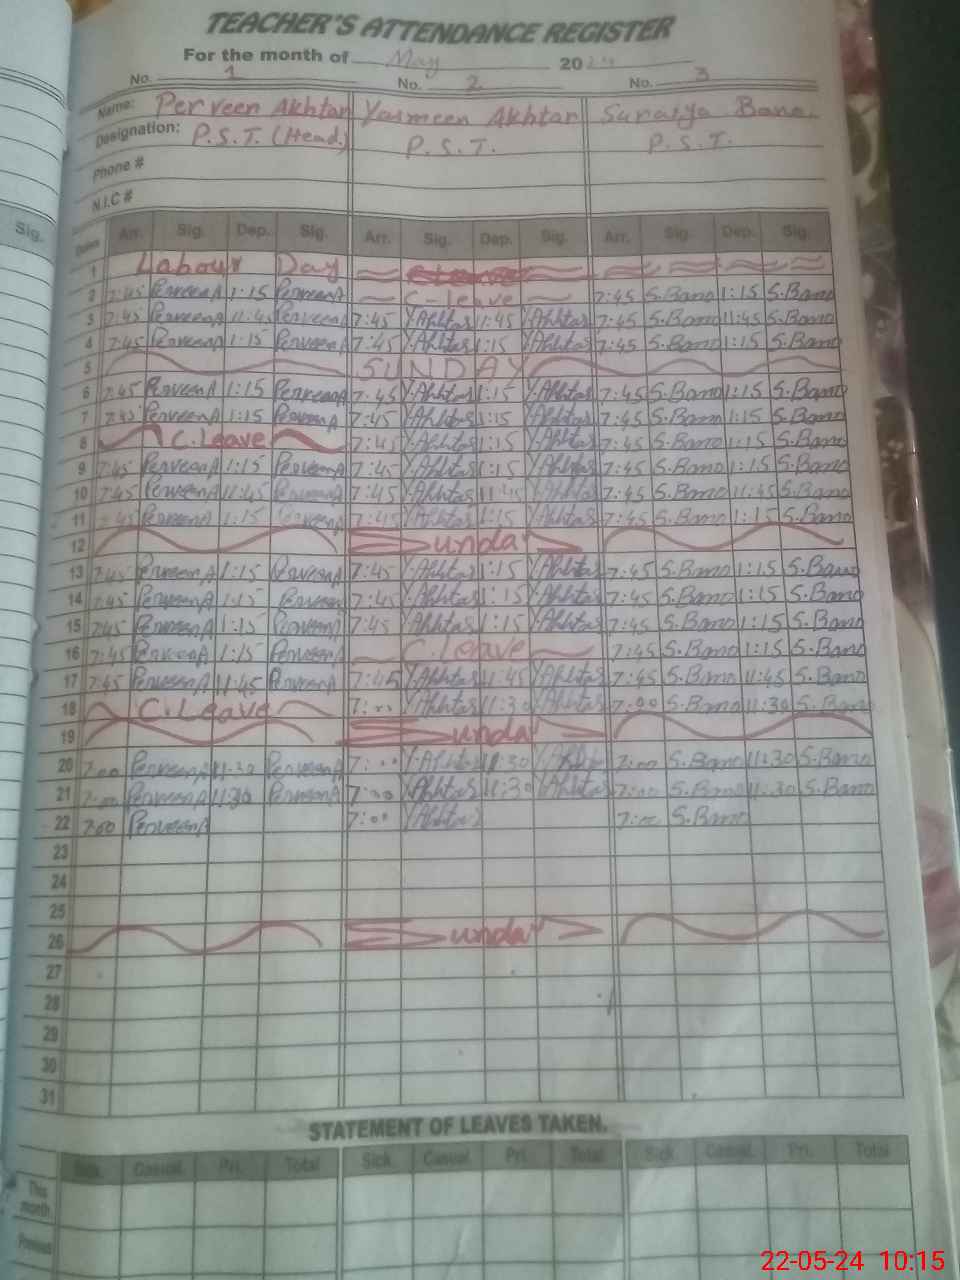 TEACHER'S ATTENDANCE REGISTER
For the month of May 2024
No. 1 No. 2 No. 3
Name: Perveen Akhtar Yasmeen Akhtar Surayya Bano.
Designation: P.S.T. (Head) P.S.T. P.S.T.
Phone #
N.I.C #
Sig.
Dates Arr. Sig. Dep. Sig. Arr. Sig. Dep. Sig. Arr. Sig. Dep. Sig.
1 Labour Day
2 7:45 PerveenA 1:15 PerveenA C-leave 7:45 S.Bano 1:15 S.Bano
3 7:45 PerveenA 11:45 PerveenA 7:45 Y.Akhtar 11:45 Y.Akhtar 7:45 S.Bano 11:45 S.Bano
4 7:45 PerveenA 1:15 PerveenA 7:45 Y.Akhtar 1:15 Y.Akhtar 7:45 S.Bano 1:15 S.Bano
5 SUNDAY
6 7:45 PerveenA 1:15 PerveenA 7:45 Y.Akhtar 1:15 Y.Akhtar 7:45 S.Bano 1:15 S.Bano
7 7:45 PerveenA 1:15 PerveenA 7:45 Y.Akhtar 1:15 Y.Akhtar 7:45 S.Bano 1:15 S.Bano
8 C.Leave 7:45 Y.Akhtar 1:15 Y.Akhtar 7:45 S.Bano 1:15 S.Bano
9 7:45 PerveenA 1:15 PerveenA 7:45 Y.Akhtar 1:15 Y.Akhtar 7:45 S.Bano 1:15 S.Bano
10 7:45 PerveenA 11:45 PerveenA 7:45 Y.Akhtar 11:45 Y.Akhtar 7:45 S.Bano 11:45 S.Bano
11 7:45 PerveenA 1:15 PerveenA 7:45 Y.Akhtar 1:15 Y.Akhtar 7:45 S.Bano 1:15 S.Bano
12 Sunday
13 7:45 PerveenA 1:15 PerveenA 7:45 Y.Akhtar 1:15 Y.Akhtar 7:45 S.Bano 1:15 S.Bano
14 7:45 PerveenA 1:15 Perveen 7:45 Y.Akhtar 1:15 Y.Akhtar 7:45 S.Bano 1:15 S.Bano
15 7:45 PerveenA 1:15 PerveenA 7:45 Y.Akhtar 1:15 Y.Akhtar 7:45 S.Bano 1:15 S.Bano
16 7:45 PerveenA 1:15 PerveenA C.leave 7:45 S.Bano 1:15 S.Bano
17 7:45 PerveenA 11:45 PerveenA 7:45 Y.Akhtar 11:45 Y.Akhtar 7:45 S.Bano 11:45 S.Bano
18 C.Leave 7:00 Y.Akhtar 11:30 Y.Akhtar 7:00 S.Bano 11:30 S.Bano
19 Sunday
20 7:00 PerveenA 11:30 PerveenA 7:00 Y.Akhtar 11:30 Y.Akhtar 7:00 S.Bano 11:30 S.Bano
21 7:00 PerveenA 11:30 PerveenA 7:00 Y.Akhtar 11:30 Y.Akhtar 7:00 S.Bano 11:30 S.Bano
22 7:00 PerveenA 7:00 Y.Akhtar 7:00 S.Bano
23
24
25
26 Sunday
27
28
29
30
31
STATEMENT OF LEAVES TAKEN.
Sick. Casual. Pri. Total Sick Casual. Pri. Total Sick. Casual. Pri. Total
This month.
Previous
22-05-24 10:15